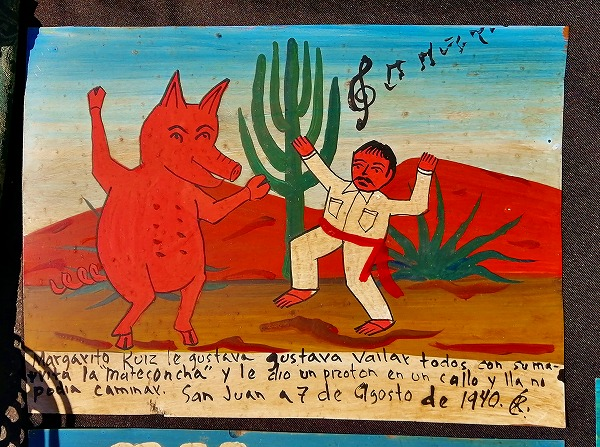 Margarito Ruiz le gustava gustava vailar todos con su ma-
la y le dio un pizoton en un callo y lla no
podia caminar. San Juan a 7 de Agosto de 1940.